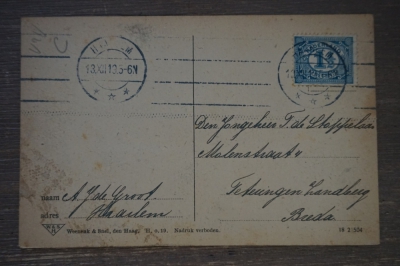 13.XII.10.5-6N
1½
Den Jongeheer T. de Stoppelaar
Molenstraat 4
Teteringen Landberg
Breda
naam A. J. de Groot.
adres Haarlem
Weenenk & Snel, den Haag, Nadruk verboden.